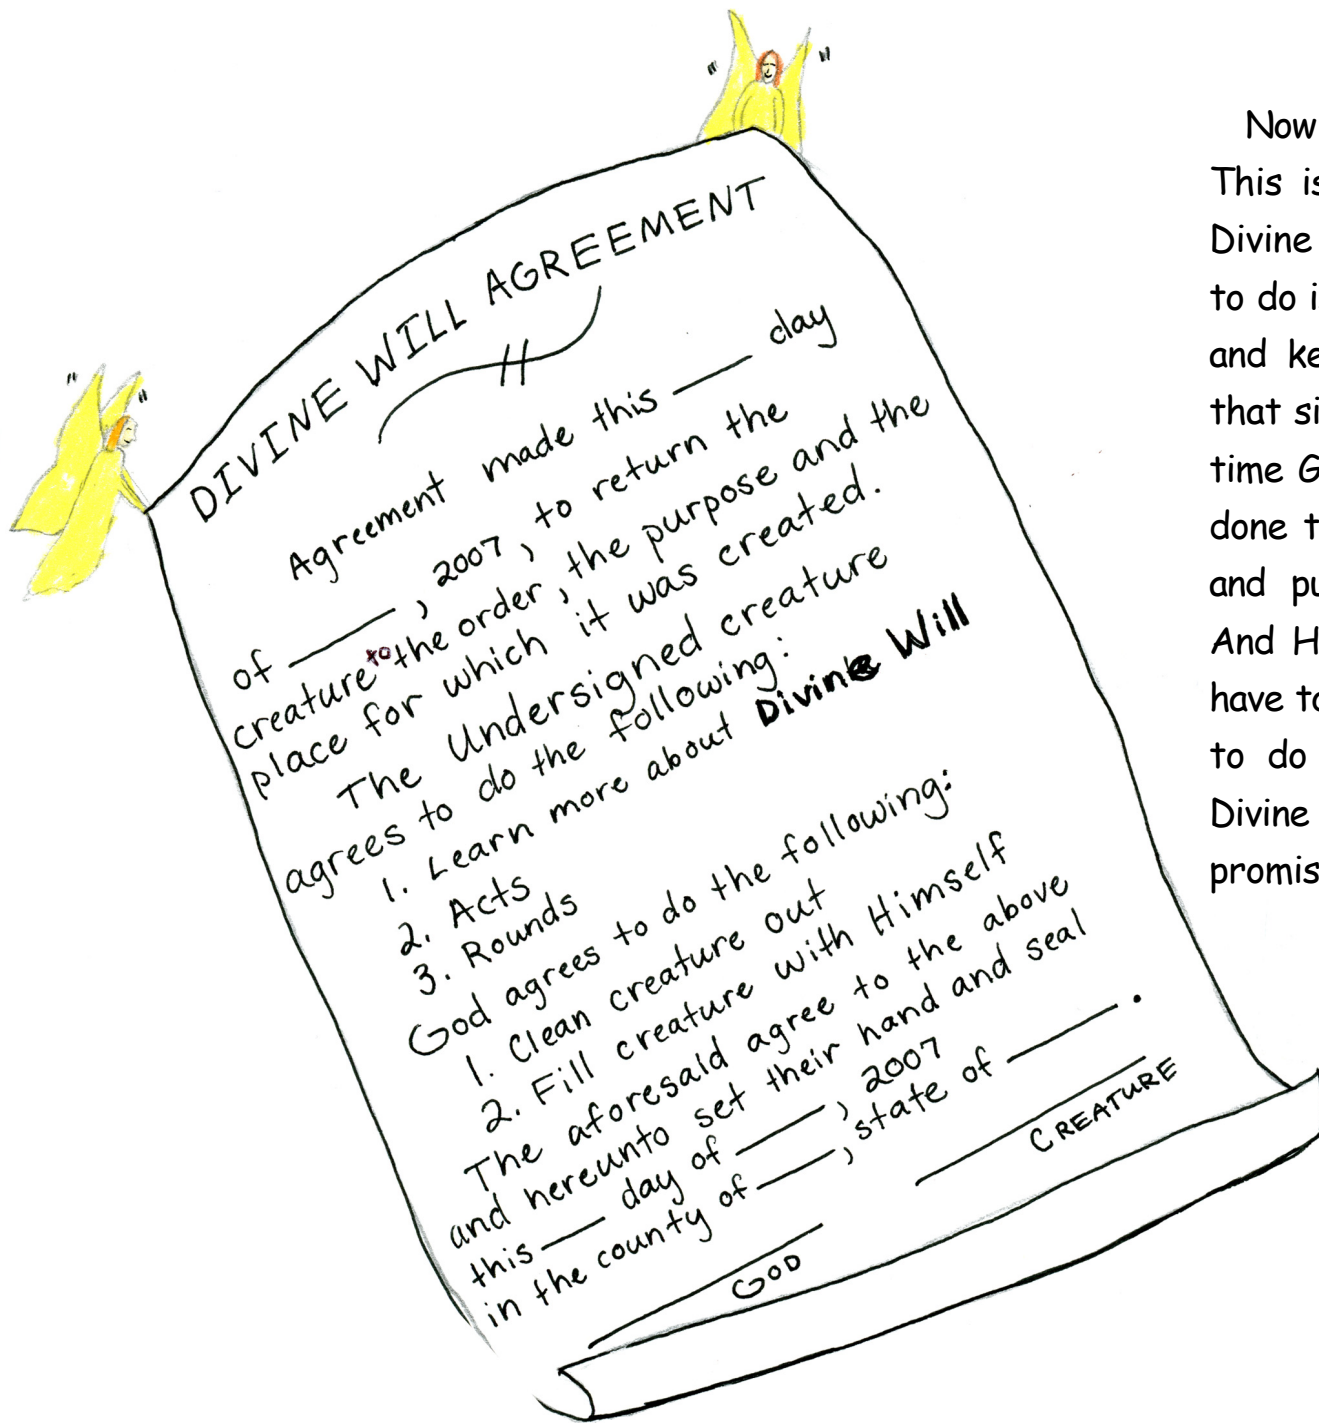 DIVINE WILL AGREEMENT
Agreement made this ____ day
of ____, 2007, to return the
creature to the order, the purpose and the
place for which it was created.
The Undersigned creature
agrees to do the following:
1. Learn more about Divine Will
2. Acts
3. Rounds
God agrees to do the following:
1. Clean creature out
2. Fill creature with Himself
The aforesaid agree to the above
and hereunto set their hand and seal
this ____ day of ____, 2007
in the county of ____, state of ____.
CREATURE
GOD
Now
This is
Divine
to do i
and ke
that si
time G
done t
and pu
And H
have to
to do
Divine
promis